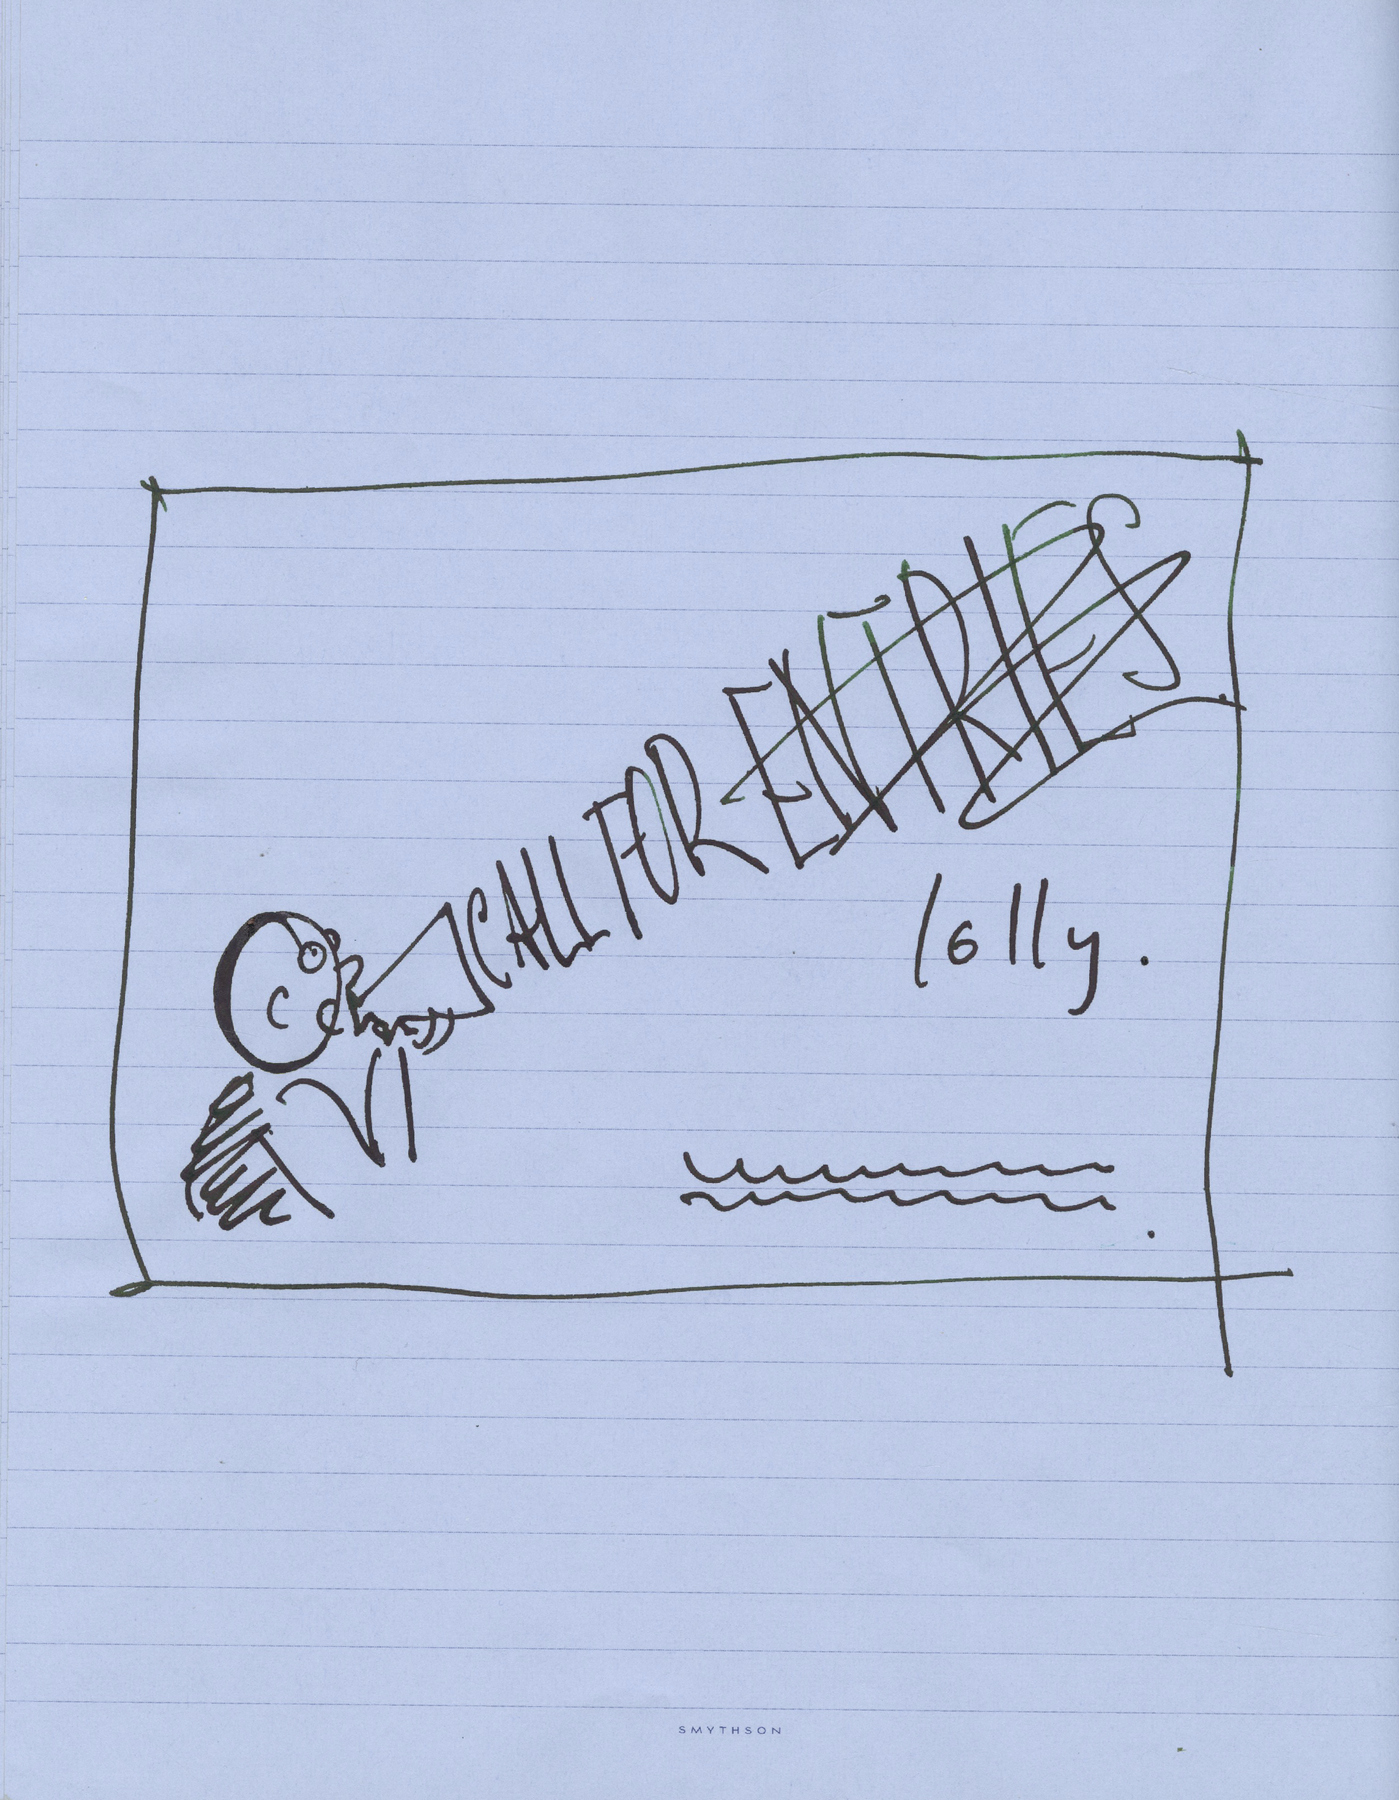 CALL FOR ENTRIES
lolly.
SMYTHSON